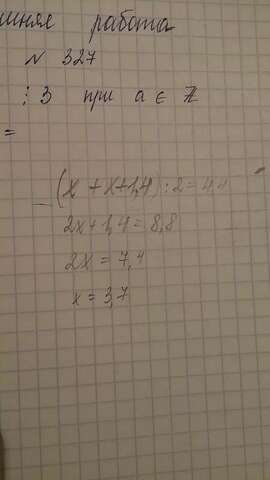 шняя работа
№ 327
⋮ 3 при a ∈ ℤ
=
(x + x+1,4) : 2 = 4,4
2x+1,4 = 8,8
2x = 7,4
x = 3,7